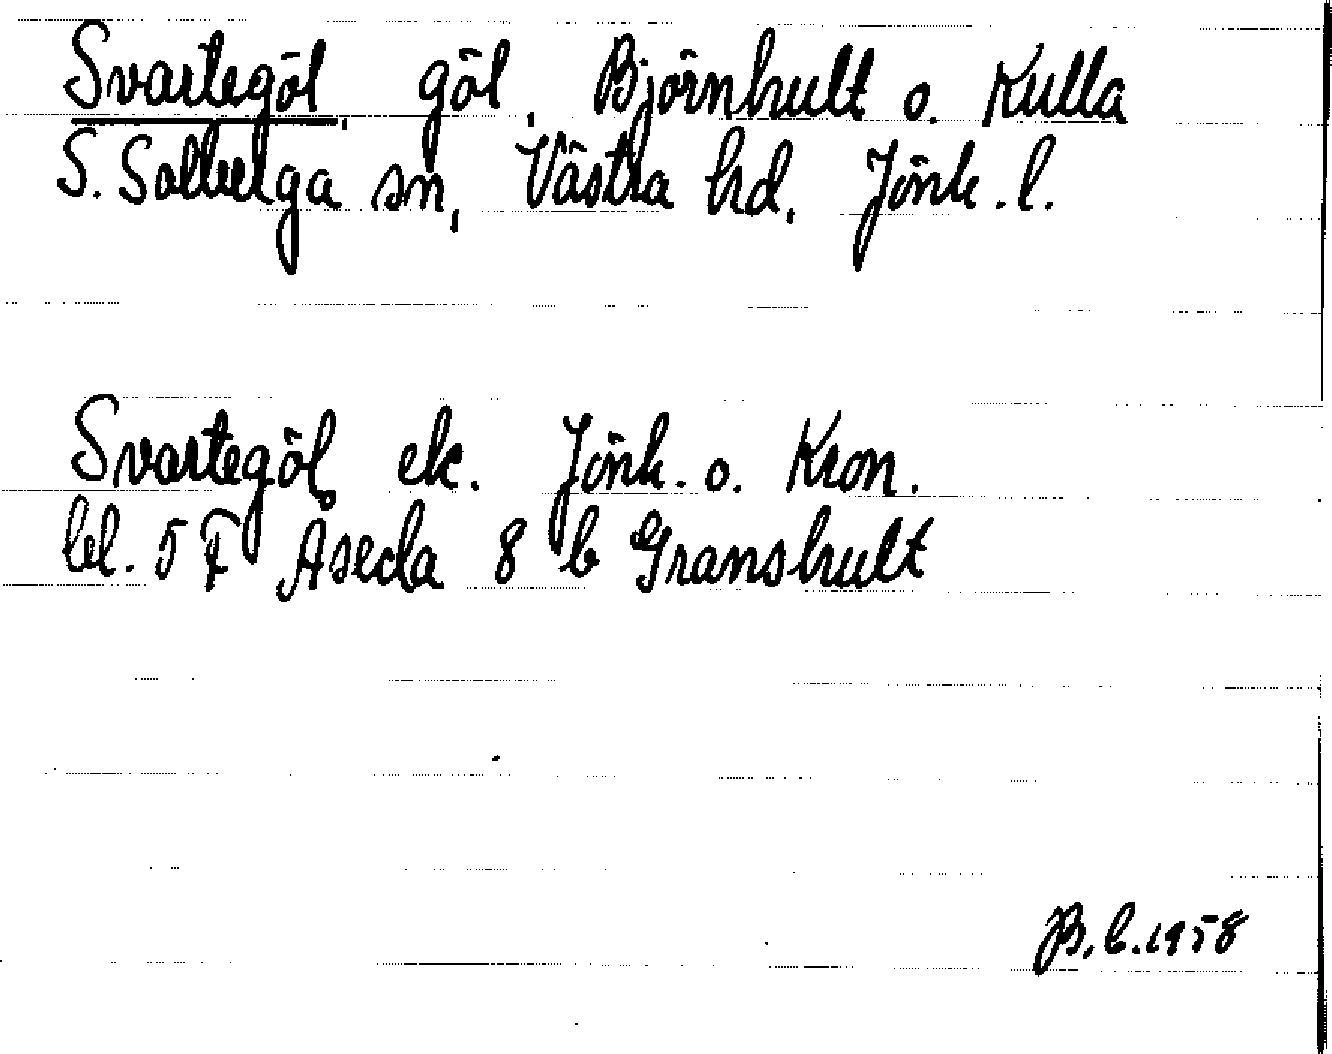 Svartegöl, göl, Björnhult o. Kulla
S. Solberga sn, Västra hd, Jönk. l.
Svartegöl ek. Jönk. o. Kron.
bl. 5 F Åseda 8 b Granshult
B.L.1958